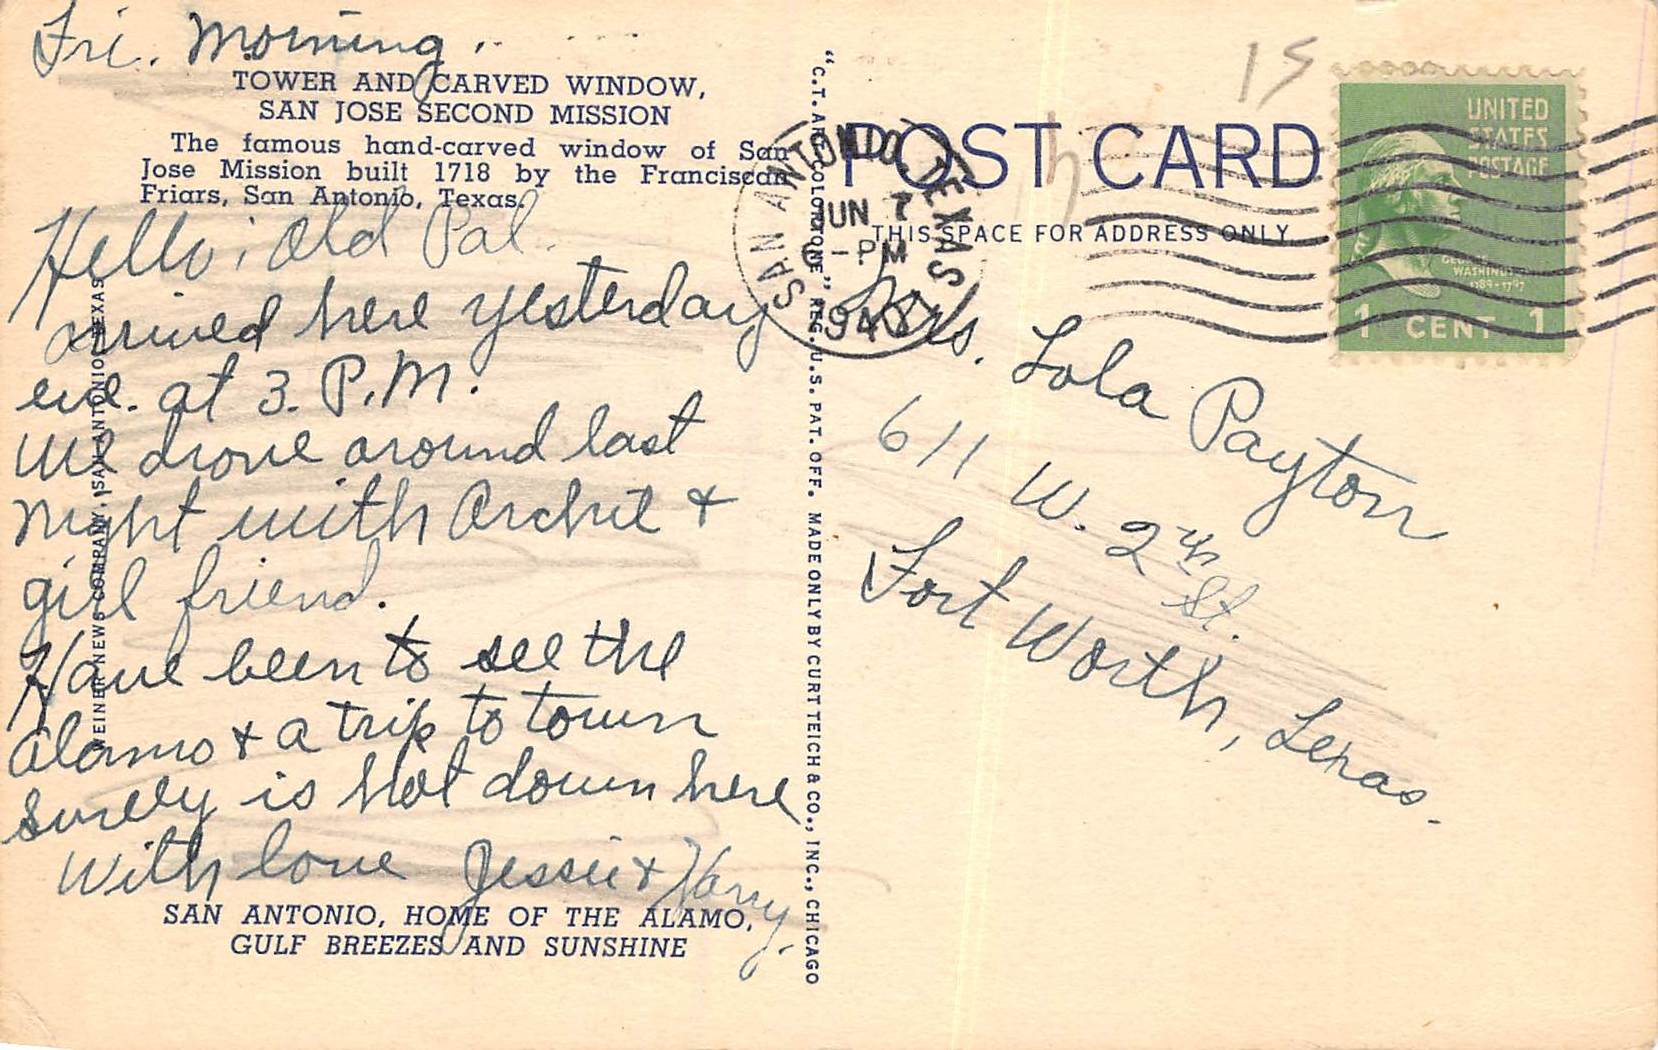 Fri. Morning.
TOWER AND CARVED WINDOW,
SAN JOSE SECOND MISSION
The famous hand-carved window of San
Jose Mission built 1718 by the Franciscan
Friars, San Antonio, Texas.
Hello; Old Pal.
arrived here yesterday
eve. at 3. P.M.
We drove around last
night with Archie &
girl friend.
Have been to see the
Alamo & a trip to town
Surely is hot down here
With love Jessie & Harry.
SAN ANTONIO, HOME OF THE ALAMO,
GULF BREEZES AND SUNSHINE
NEWS COMPANY, SAN ANTONIO, TEXAS
"C.T. ART COLORTONE" REG. U.S. PAT. OFF. MADE ONLY BY CURT TEICH & CO., INC., CHICAGO
15
POST CARD
THIS SPACE FOR ADDRESS ONLY
SAN ANTONIO TEXAS
JUN 7
-PM
194
UNITED
STATES
POSTAGE
GEORGE
WASHINGTON
1789-1797
1 CENT 1
Mrs. Lola Payton
611 W. 2nd
St.
Fort Worth, Texas.